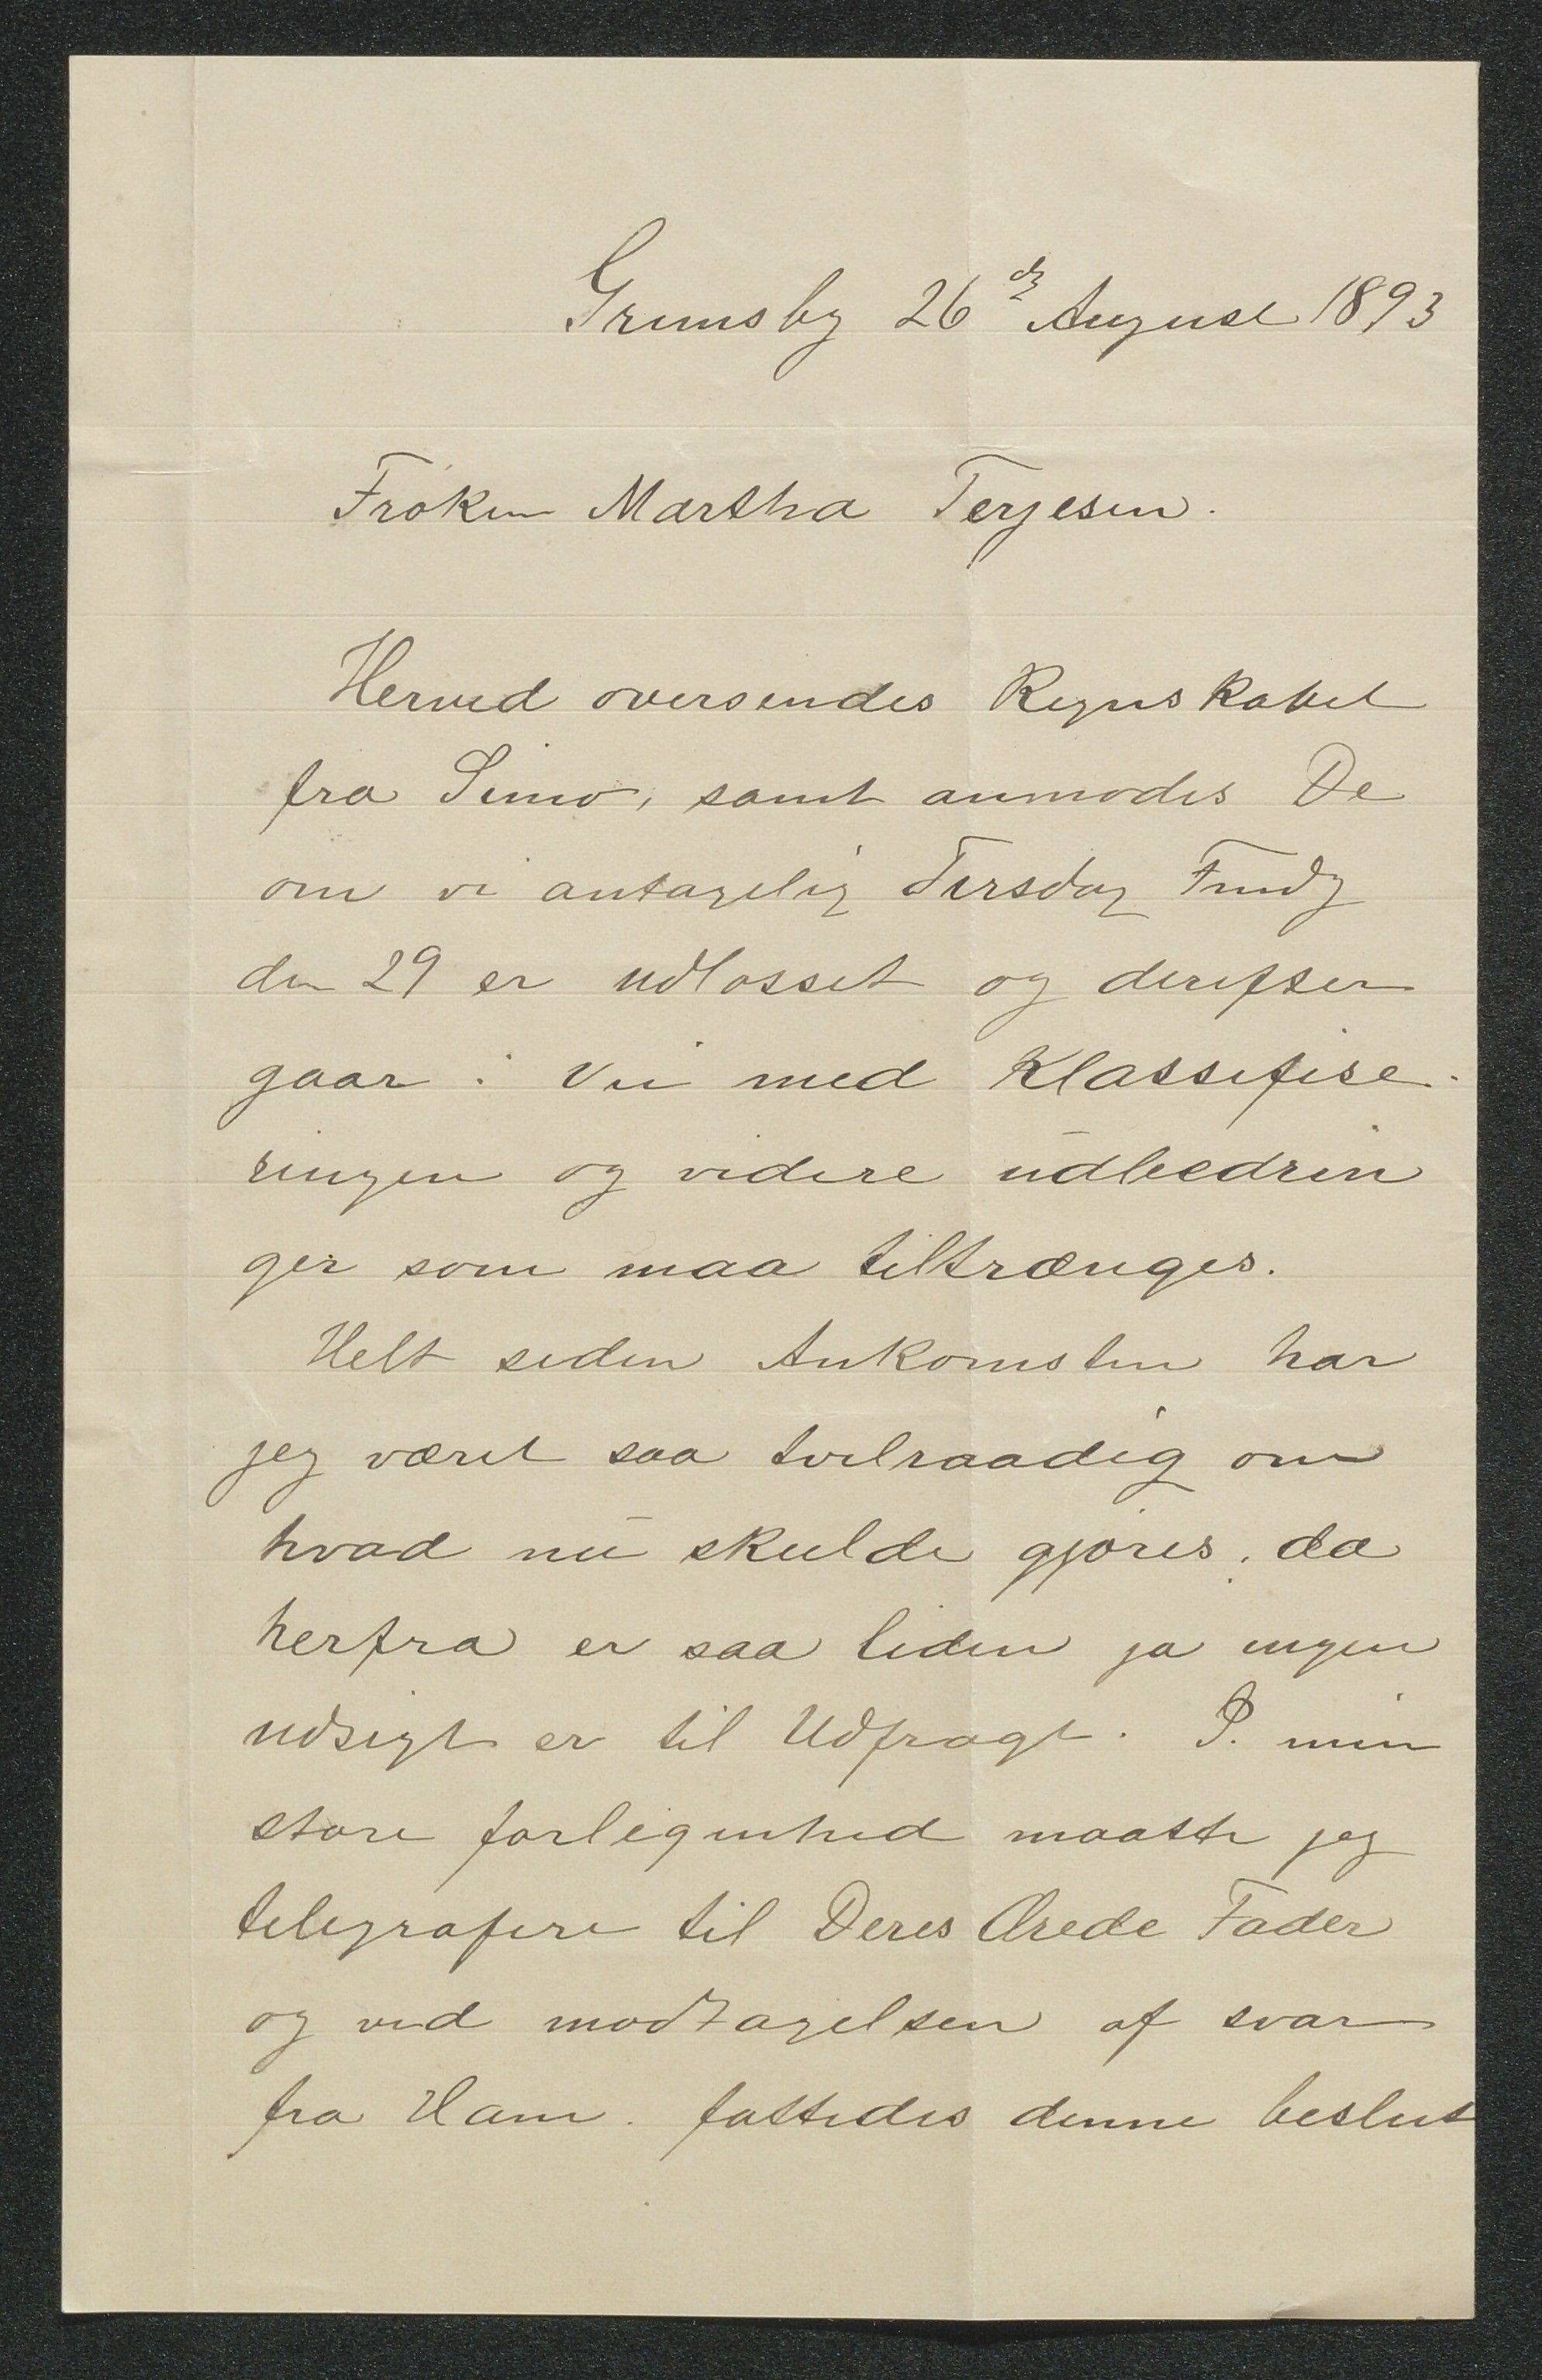 Grimsby 26 de August 1893
Frøken Martha Terjesen.
Herved oversendes Regnskabet
fra Simo, samt anmodes De
om vi antagelig Tirsdag
den 29 er udlosset og derefter
gaar i vei med Klassifise-
ringen og videre udbedrin
ger som maa tiltrænges.
Helt siden Ankomsten har
jeg været saa tvilraadig om
hvad nu skulde gjøres, da
herfra er saa liden ja ingen
udsigt er til Udfragt. I min
store forlegenhed maatte jeg
telegrafere til Deres Ærede Fader
og ved modtagelsen af svar
fra Ham. fattedes denne beslut